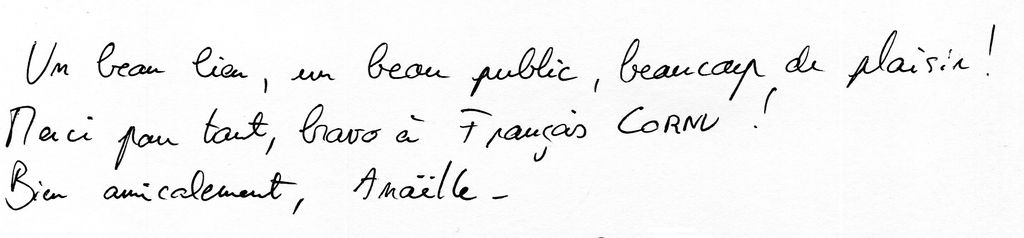 Un beau lieu, un beau public, beaucoup de plaisir !
Merci pour tout, bravo à François CORNU !
Bien amicalement, Anaëlle -